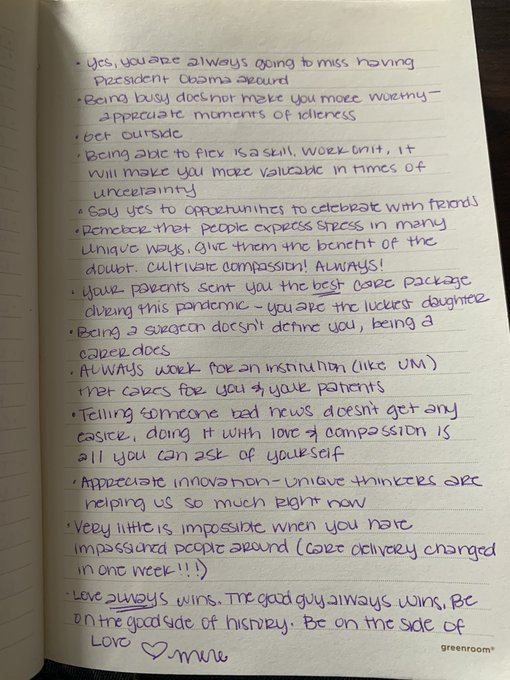 • Yes, you are always going to miss having
President Obama around
• Being busy does not make you more worthy –
appreciate moments of idleness
• Get outside
• Being able to flex is a skill, work on it, it
will make you more valuable in times of
uncertainty
• Say yes to opportunities to celebrate with friends
• Remeber that people express stress in many
unique ways, give them the benefit of the
doubt. Cultivate compassion! ALWAYS!
• Your parents sent you the best care package
during this pandemic – you are the luckiest daughter
• Being a surgeon doesn't define you, being a
carer does
• ALWAYS work for an institution (like UM)
that cares for you & your parents
• Telling someone bad news doesn't get any
easier, doing it with love & compassion is
all you can ask of yourself
• Appreciate innovation – unique thinkers are
helping us so much right now
• Very little is impossible when you have
impassioned people around (care delivery changed
in one week!!!)
• Love always wins. The good guy always wins. Be
on the good side of history. Be on the side of
Love ♡ mere
greenroom®